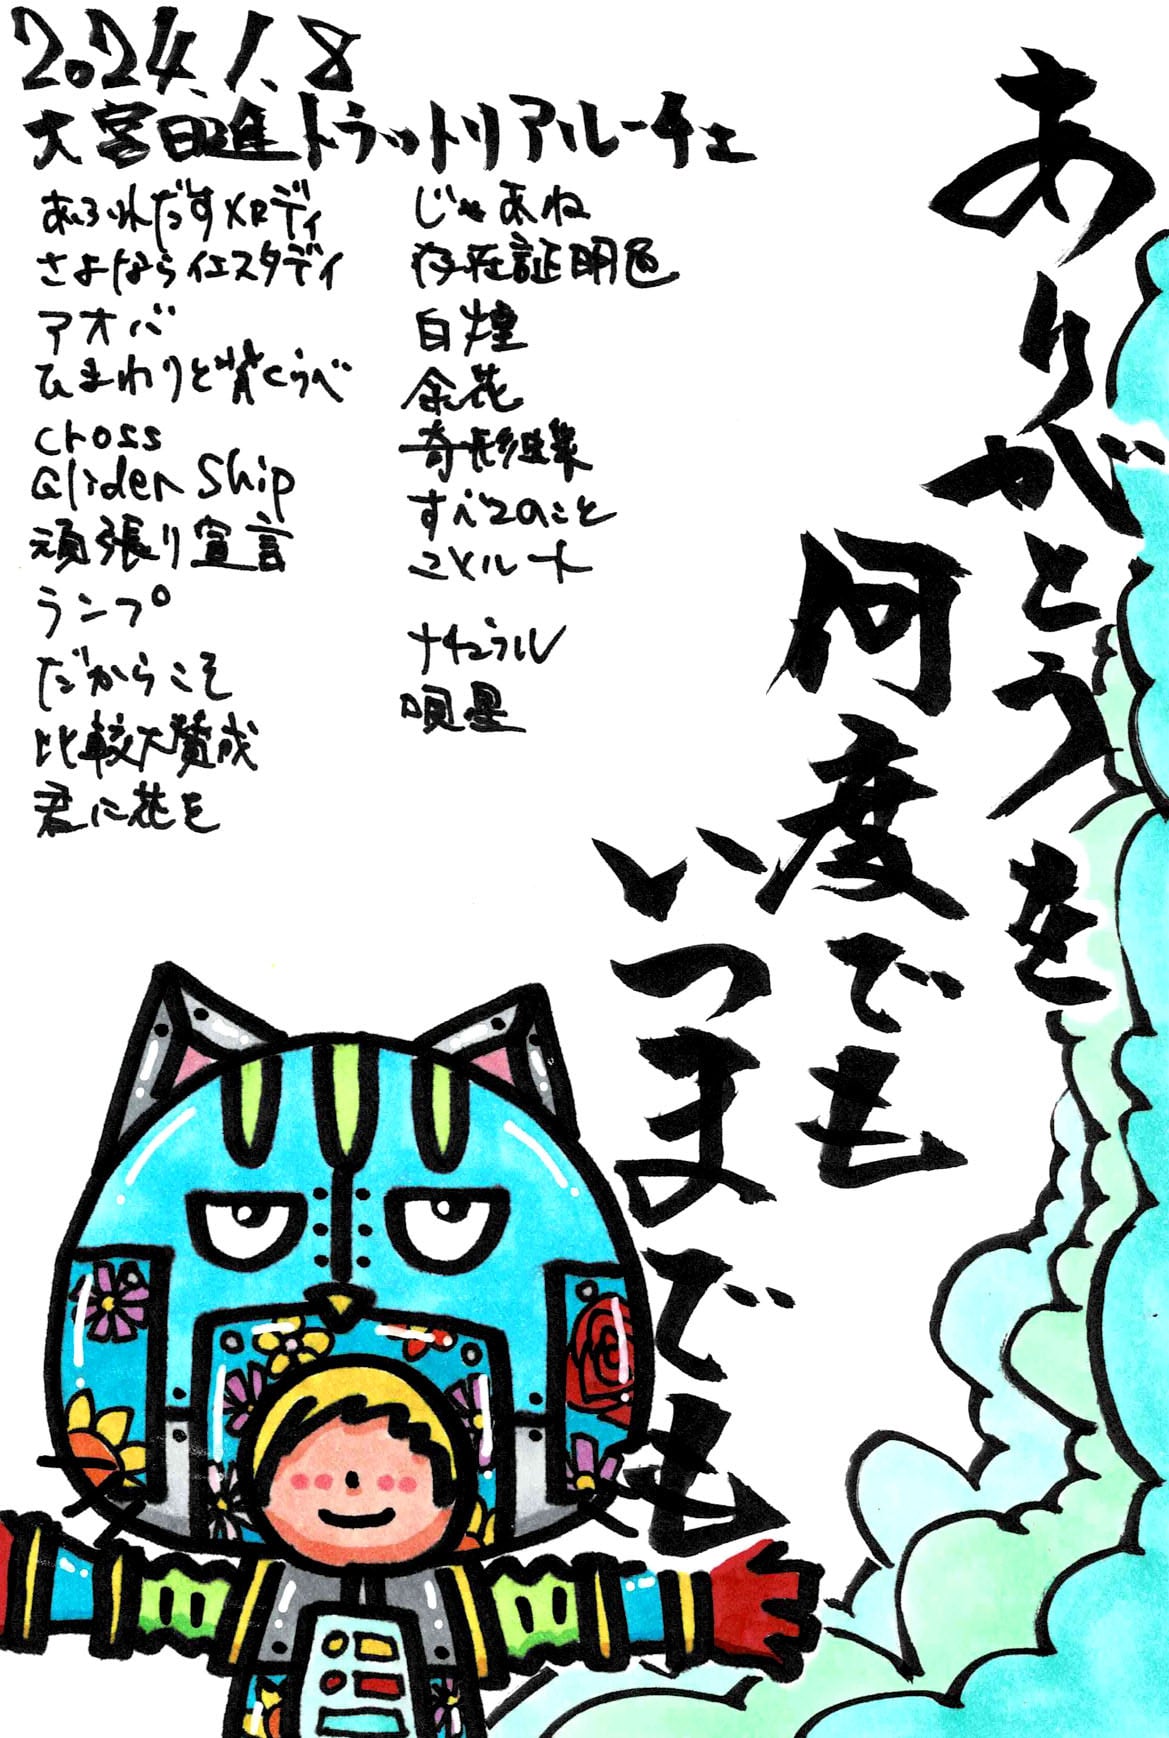 2024.1.8
大宮日進トラットリアルーチェ
あふれだすメロディ
さよならイエスタデイ
アオバ
ひまわりと背くらべ
cross
Glider Ship
頑張り宣言
ランプ
だからこそ
比較大賛成
君に花を
じゃあね
存在証明色
白煌
余花
奇形継業
すべてのこと
コメルート
ナチュラル
唄星
ありがとうを
何度でも
いつまでも